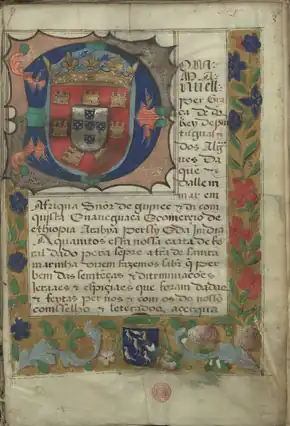 per Gra
ça De d
Rey De por
tugual e
Dos Algar
ves Da
que e
Dallem
mar em
Afriqua Snõr de guinee e da con
quista e navegaçã e comercio de
ethiopia Arabia persia e Da India
A quamtos esta nossa carta de fo
ral dado pera sempre a trã de santa
marinha virem fazemos saber q per
bem das semtenças e ditriminações
jeraaes e espiçiaes que foram dadas
e feytas per nos e com os do nosso
comsselho e leterados acerqua